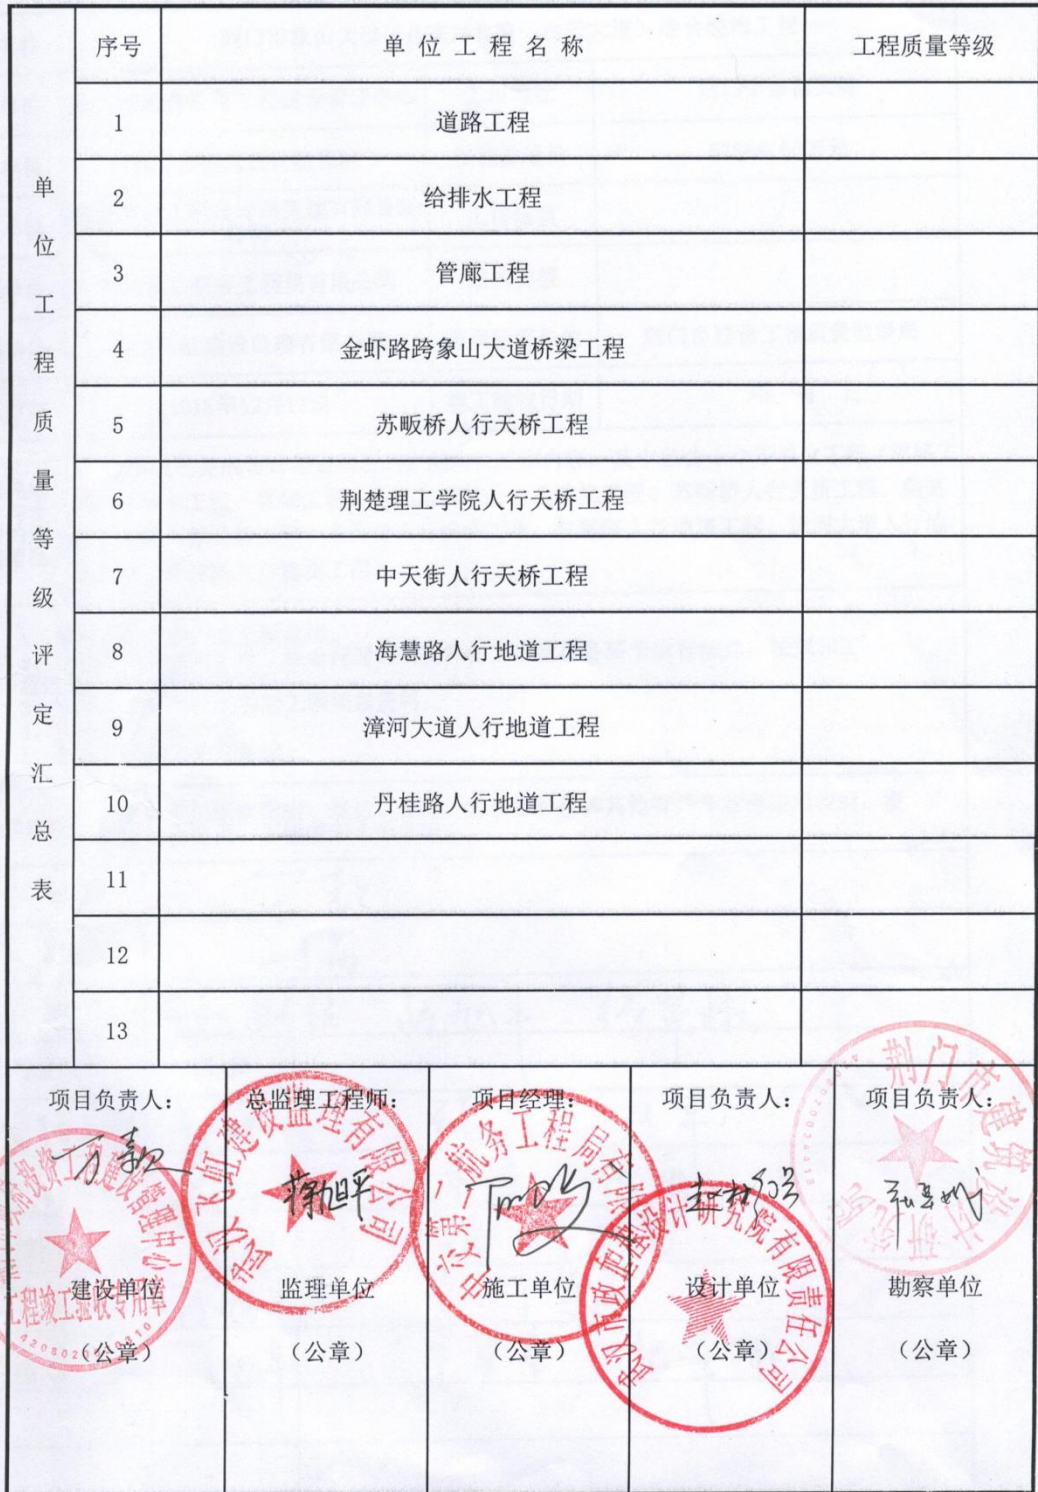 单位工程质量等级评定汇总表
序号 单位工程名称 工程质量等级
1 道路工程
2 给排水工程
3 管廊工程
4 金虾路跨象山大道桥梁工程
5 苏畈桥人行天桥工程
6 荆楚理工学院人行天桥工程
7 中天街人行天桥工程
8 海慧路人行地道工程
9 漳河大道人行地道工程
10 丹桂路人行地道工程
11
12
13
项目负责人： 总监理工程师： 项目经理： 项目负责人： 项目负责人：
建设单位 监理单位 施工单位 设计单位 勘察单位
（公章） （公章） （公章） （公章） （公章）
投资工程建设管理中心
工程竣工验收专用章
武汉飞虹建设监理有限公司
中交第一航务工程局有限
武汉市政工程设计研究院有限责任公司
荆门市建筑设计研究院